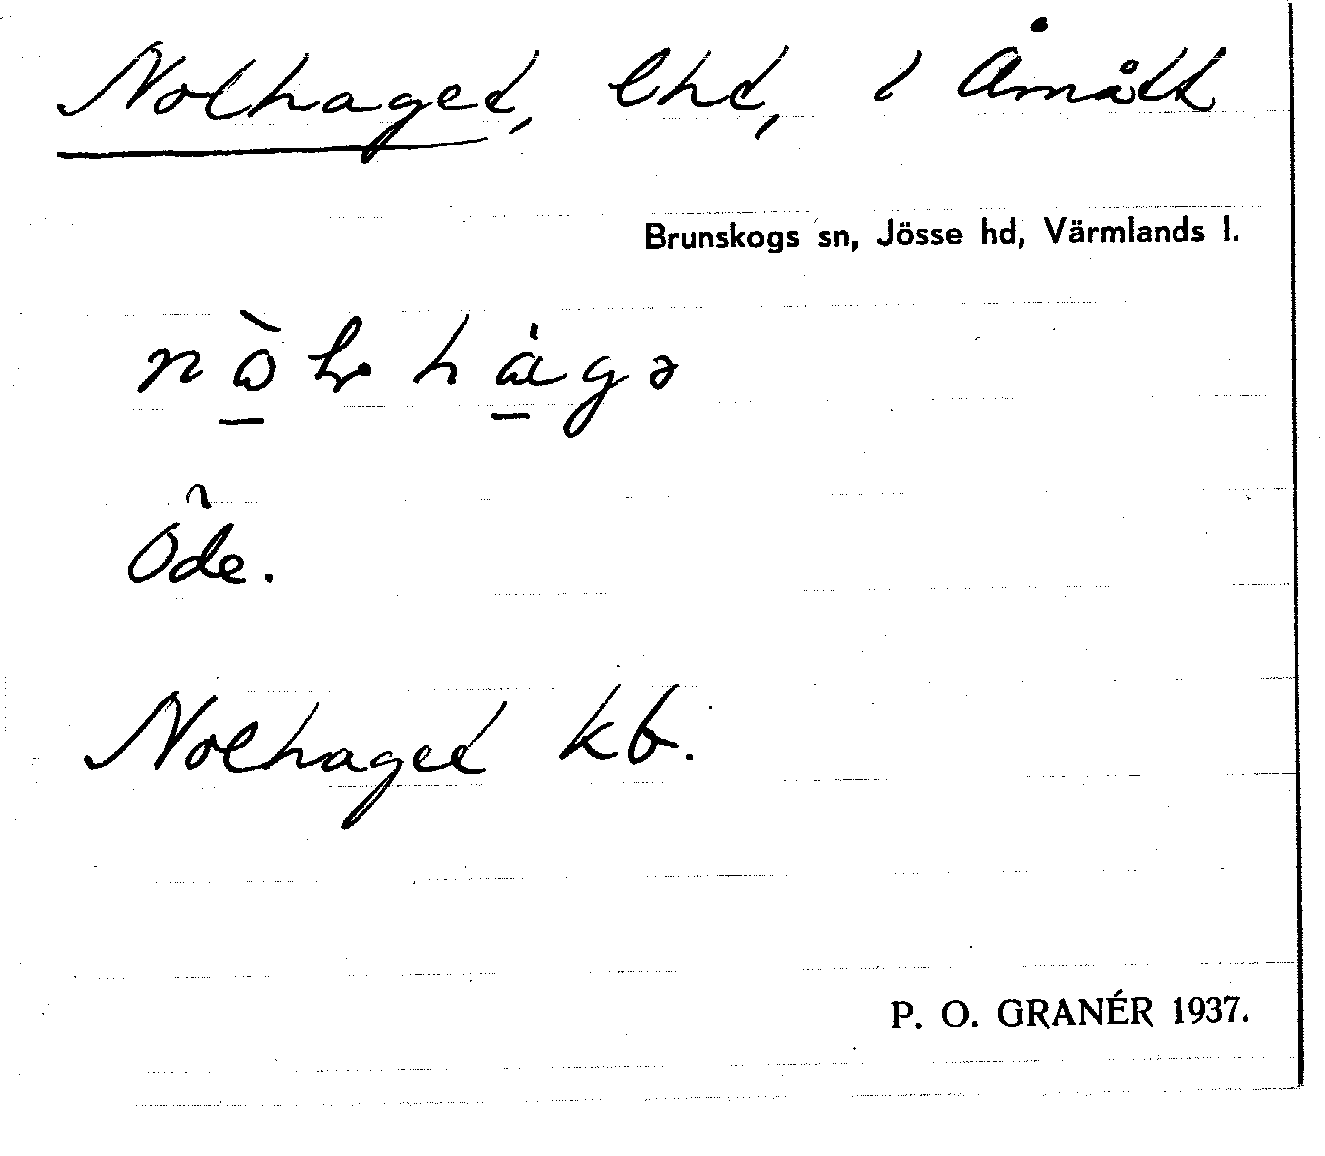 Nolhaget, lht, i Åmått
Brunskogs sn, Jösse hd, Värmlands l.
Öde.
Nolhaget kb.
P. O. GRANÉR 1937.